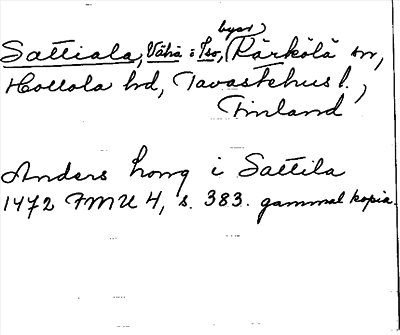 byar)
Sattiala, Vähä : Iso, (Kärkölä sn,
Hollola hd, Tavastehus l.,
Finland
Anders Long i Sattila
1472 FMU 4, s. 383. gammal kopia.